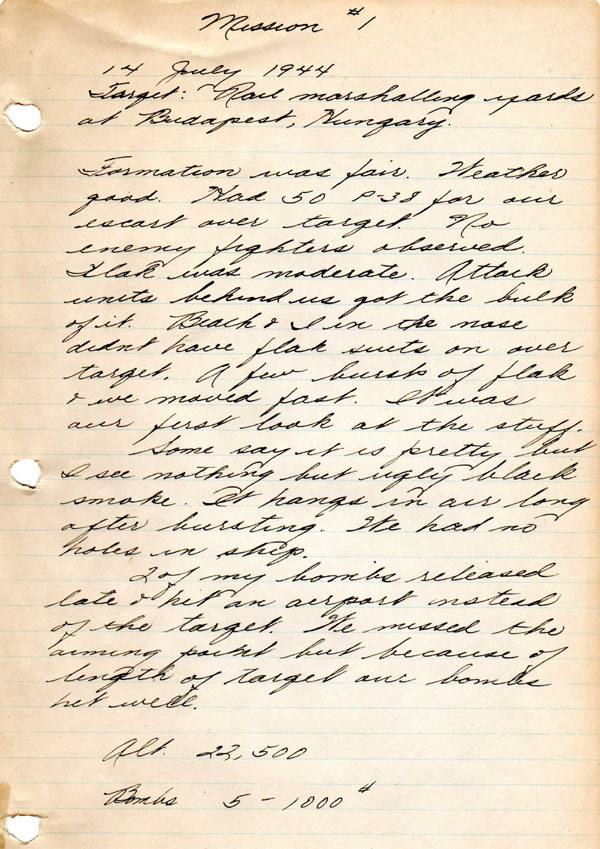 Mission #1
14 July 1944
Target: Rail marshalling yards
at Budapest, Hungary.
Formation was fair. Weather
good. Had 50 P-38 for our
escort over target. No
enemy fighters observed.
Flak was moderate. Attack
units behind us got the bulk
of it. Beach & I in the nose
didnt have flak suits on over
target. A few bursts of flak
& we moved fast. It was
our first look at the stuff.
Some say it is pretty but
I see nothing but ugly black
smoke. It hangs in air long
after bursting. We had no
holes in ship.
2 of my bombs released
late & hit an airport instead
of the target. We missed the
aiming point but because of
length of target our bombs
hit well.
Alt. 22,500
Bombs 5 - 1000#